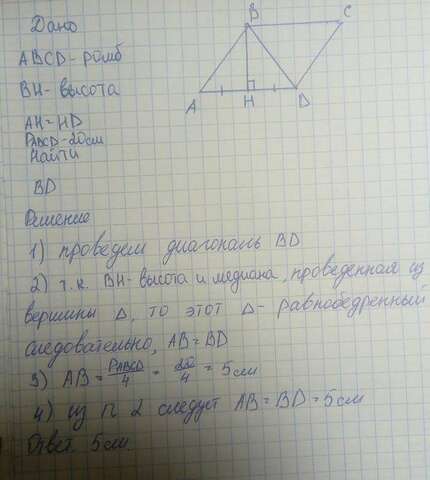 Дано
B C
ABCD - ромб
BH - высота
A H D
AH = HD
PABCD - 20см
Найти
BD
Решение
1) проведем диагональ BD
2) т.к. BH - высота и медиана, проведенная из
вершины Δ, то этот Δ - равнобедренный
следовательно, AB = BD
3) AB = PABCD/4 = 20/4 = 5 см
4) из п 2 следует AB = BD = 5 см
Ответ 5 см.